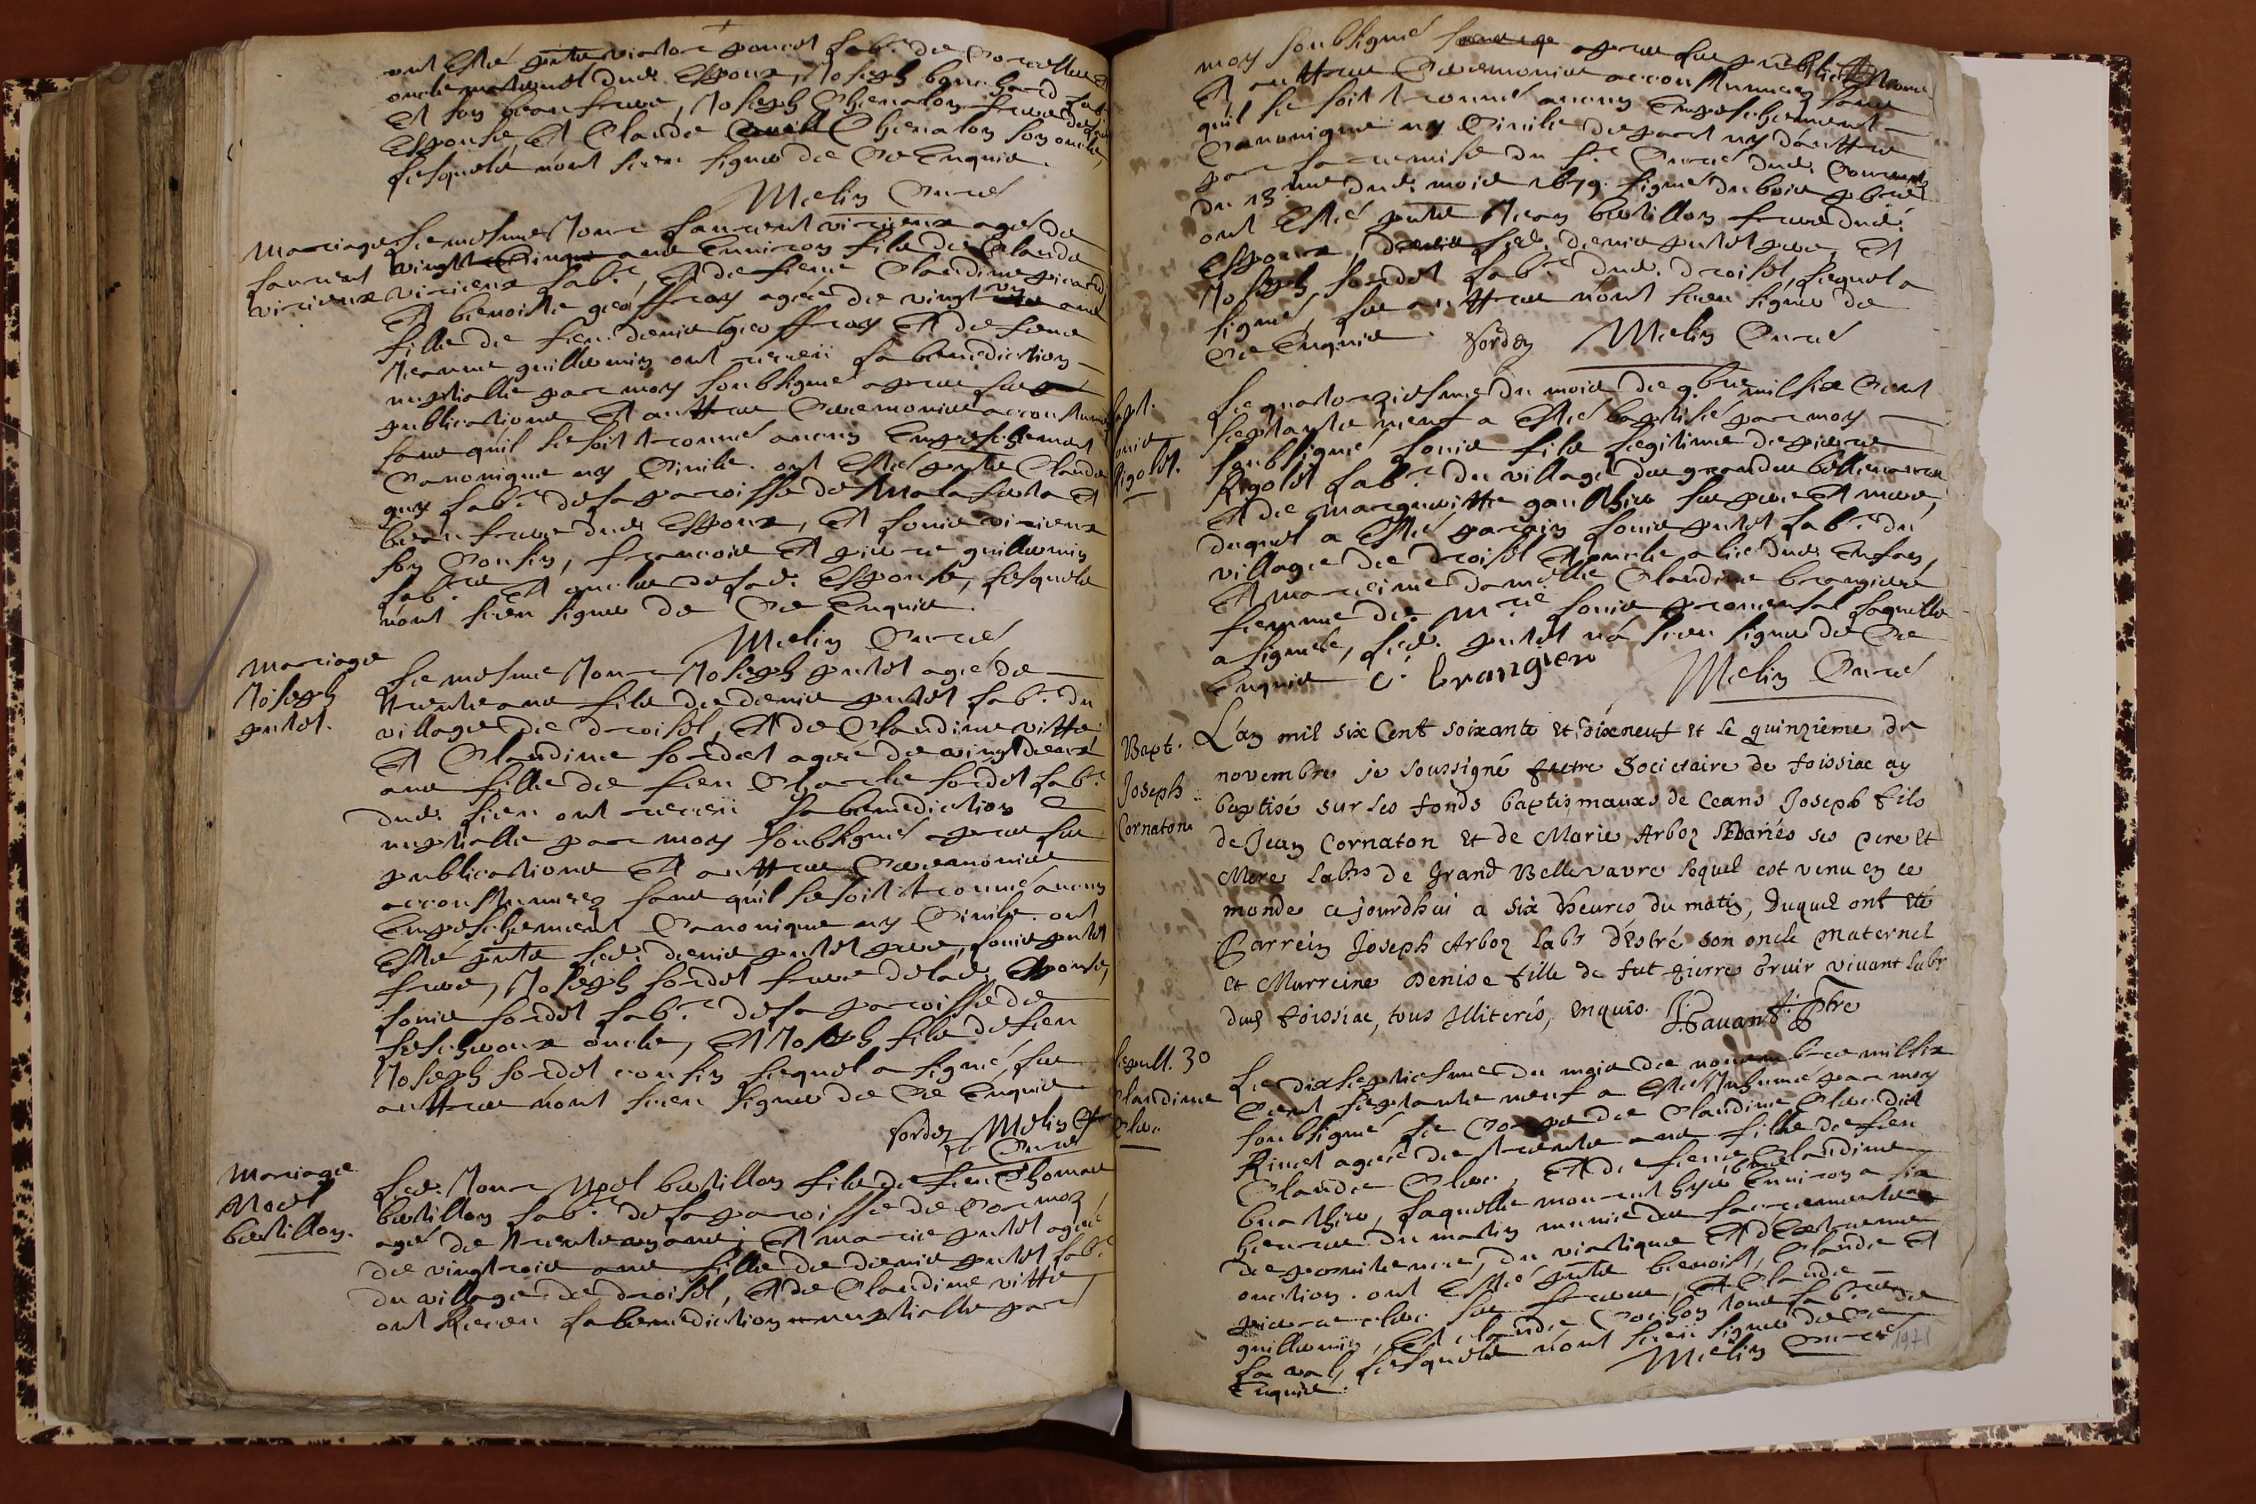 ont esté pnts victor poncet lab.r de
oncle maternel dud. espoux, Joseph bouchard lab.
et son beau frere, Joseph Chenalon frere de lad.
espouse, et Claude Chenalon son oncle,
lesquels n'ont sceu signer de ce enquis.
Melin Curé
Mariage
laurent
virieux
Le mesme Jour laurent virieux agé de
vingt cinq ans environ fils de Claude
virieux lab.r, et de feue Claudine picard
et benoiste geoffray agée de vingt ans
fille de feu denis geoffray et de feue
Jeanne guillemin ont receü la benediction
nuptialle par moy soubsigné apres les
publications et auttres Ceremonies accoustumées
sans qu'il se soit trouvé aucun empeschement
Canonique ny Civile. ont esté pnts Claude
guy lab.r de la paroisse de Malafreta et
beau frere dud. espoux, et louis virieux
son Cousin, francois et pierre guillemin
lab.rs et oncles de lad. espouse, lesquels
n'ont sceu signer de ce enquis.
Melin Curé
Mariage
Joseph
putet.
Le mesme Jour Joseph putet agé de
trente ans fils de denis putet lab.r du
village de droiset, et de Claudine vitte
et Claudine sordet agée de vingt deux
ans fille de feu Charle sordet lab.r
dud. lieu ont receü la benediction
nuptialle par moy soubsigné apres les
publications et auttres Ceremonies
accoustumees sans qu'il se soit trouvé aucun
empeschement Canonique ny Civile. ont
esté pnts led. denis putet pere, louis putet
frere, Joseph sordet frere de lad. espouse,
louis sordet lab.r de la paroisse de
lescheroux oncle, et Joseph fils de feu
Joseph sordet cousin lequel a signé, les
auttres n'ont sceu signer de ce enquis
Sordet Melin
Curé
Mariage
Noel
bertillon.
Led. Jour Noel bertillon fils de feu thomas
bertillon lab.r de la paroisse de Cormoz
agé de trente un ans, et marie putet agée
de vingt trois ans fille de denis putet lab.r
du village de droiset, et de Claudine vitte,
ont Receu la benediction nuptialle par
moy soubsigné apres les publications
et auttres Ceremonies accoustumees sans
qu'il se soit trouvé aucun empeschement
Canonique ny Civile de part ny d'auttre
par la remise du s.r Curé dud. Cormoz
du 13.me dud. mois 1679. signé dubois pbre
ont esté pnts Jean bertillon frere dud.
espoux, led. denis putet pere, et
Joseph sordet lab.r dud. droiset, lequel a
signé, les auttres n'ont sceu signer de
ce enquis. Sordet Melin Curé
bapt.
louis
Rigolet.
Le quatorziesme du mois de 9bre mil six Cent
septante neuf a esté baptisé par moy
soubsigné louis fils legitime de pierre
Rigolet lab.r du village des grandes bellevavres
et de marguerite gauthier ses pere et mere,
duquel a esté parain louis putet lab.r du
village de droiset et oncle, alié dud. enfan,
et marreine damoiselle Claudine brangier
femme de m.re louis provensal laquelle
a signée, led. putet n'a sceu signer de ce
enquis C. brangier
Melin Curé
Bapt.
Joseph
Cornaton
L'an mil six Cent soixante et dixneuf et le quinzieme de
novembre je soussigné Pretre Societaire de foissiac ay
baptisé sur les fonds baptismauxs de Ceans Joseph fils
de Jean Cornaton et de Marie Arboz Mariés ses Pere et
Mere lab.rs de Grand Bellevavre lequel est venu en ce
monde ce jourdhui a six dheures du matin, duquel ont été
Parrein Joseph Arboz lab.r d'Estré son oncle maternel
et Marreine Denise fille de fut pierre Gruir vivant lab.r
dud foissiac, tous Illiterés, enquis. Pavant Pbre
sepult. 30
Claudine
Clerc
Le dixseptiesme du mois de novembre mil six
Cent septante neuf a esté Inhumé par moy
soubsigné le Corps de Claudine Clerc dit
Rinet agée de trente ans fille de feu
Claude Clerc, et de feue Claudine
buathier, laquelle mourut hyer environ a six
heures du matin munie des sacrements
de penitence, du viatique et d'extreme
onction. ont esté pnts benoist, Claude et
pierre clerc ses freres, et Claude
guillemin, et claude Cochon tous lab.rs de
la val, lesquels n'ont sceu signer de ce
enquis. Melin Curé
197